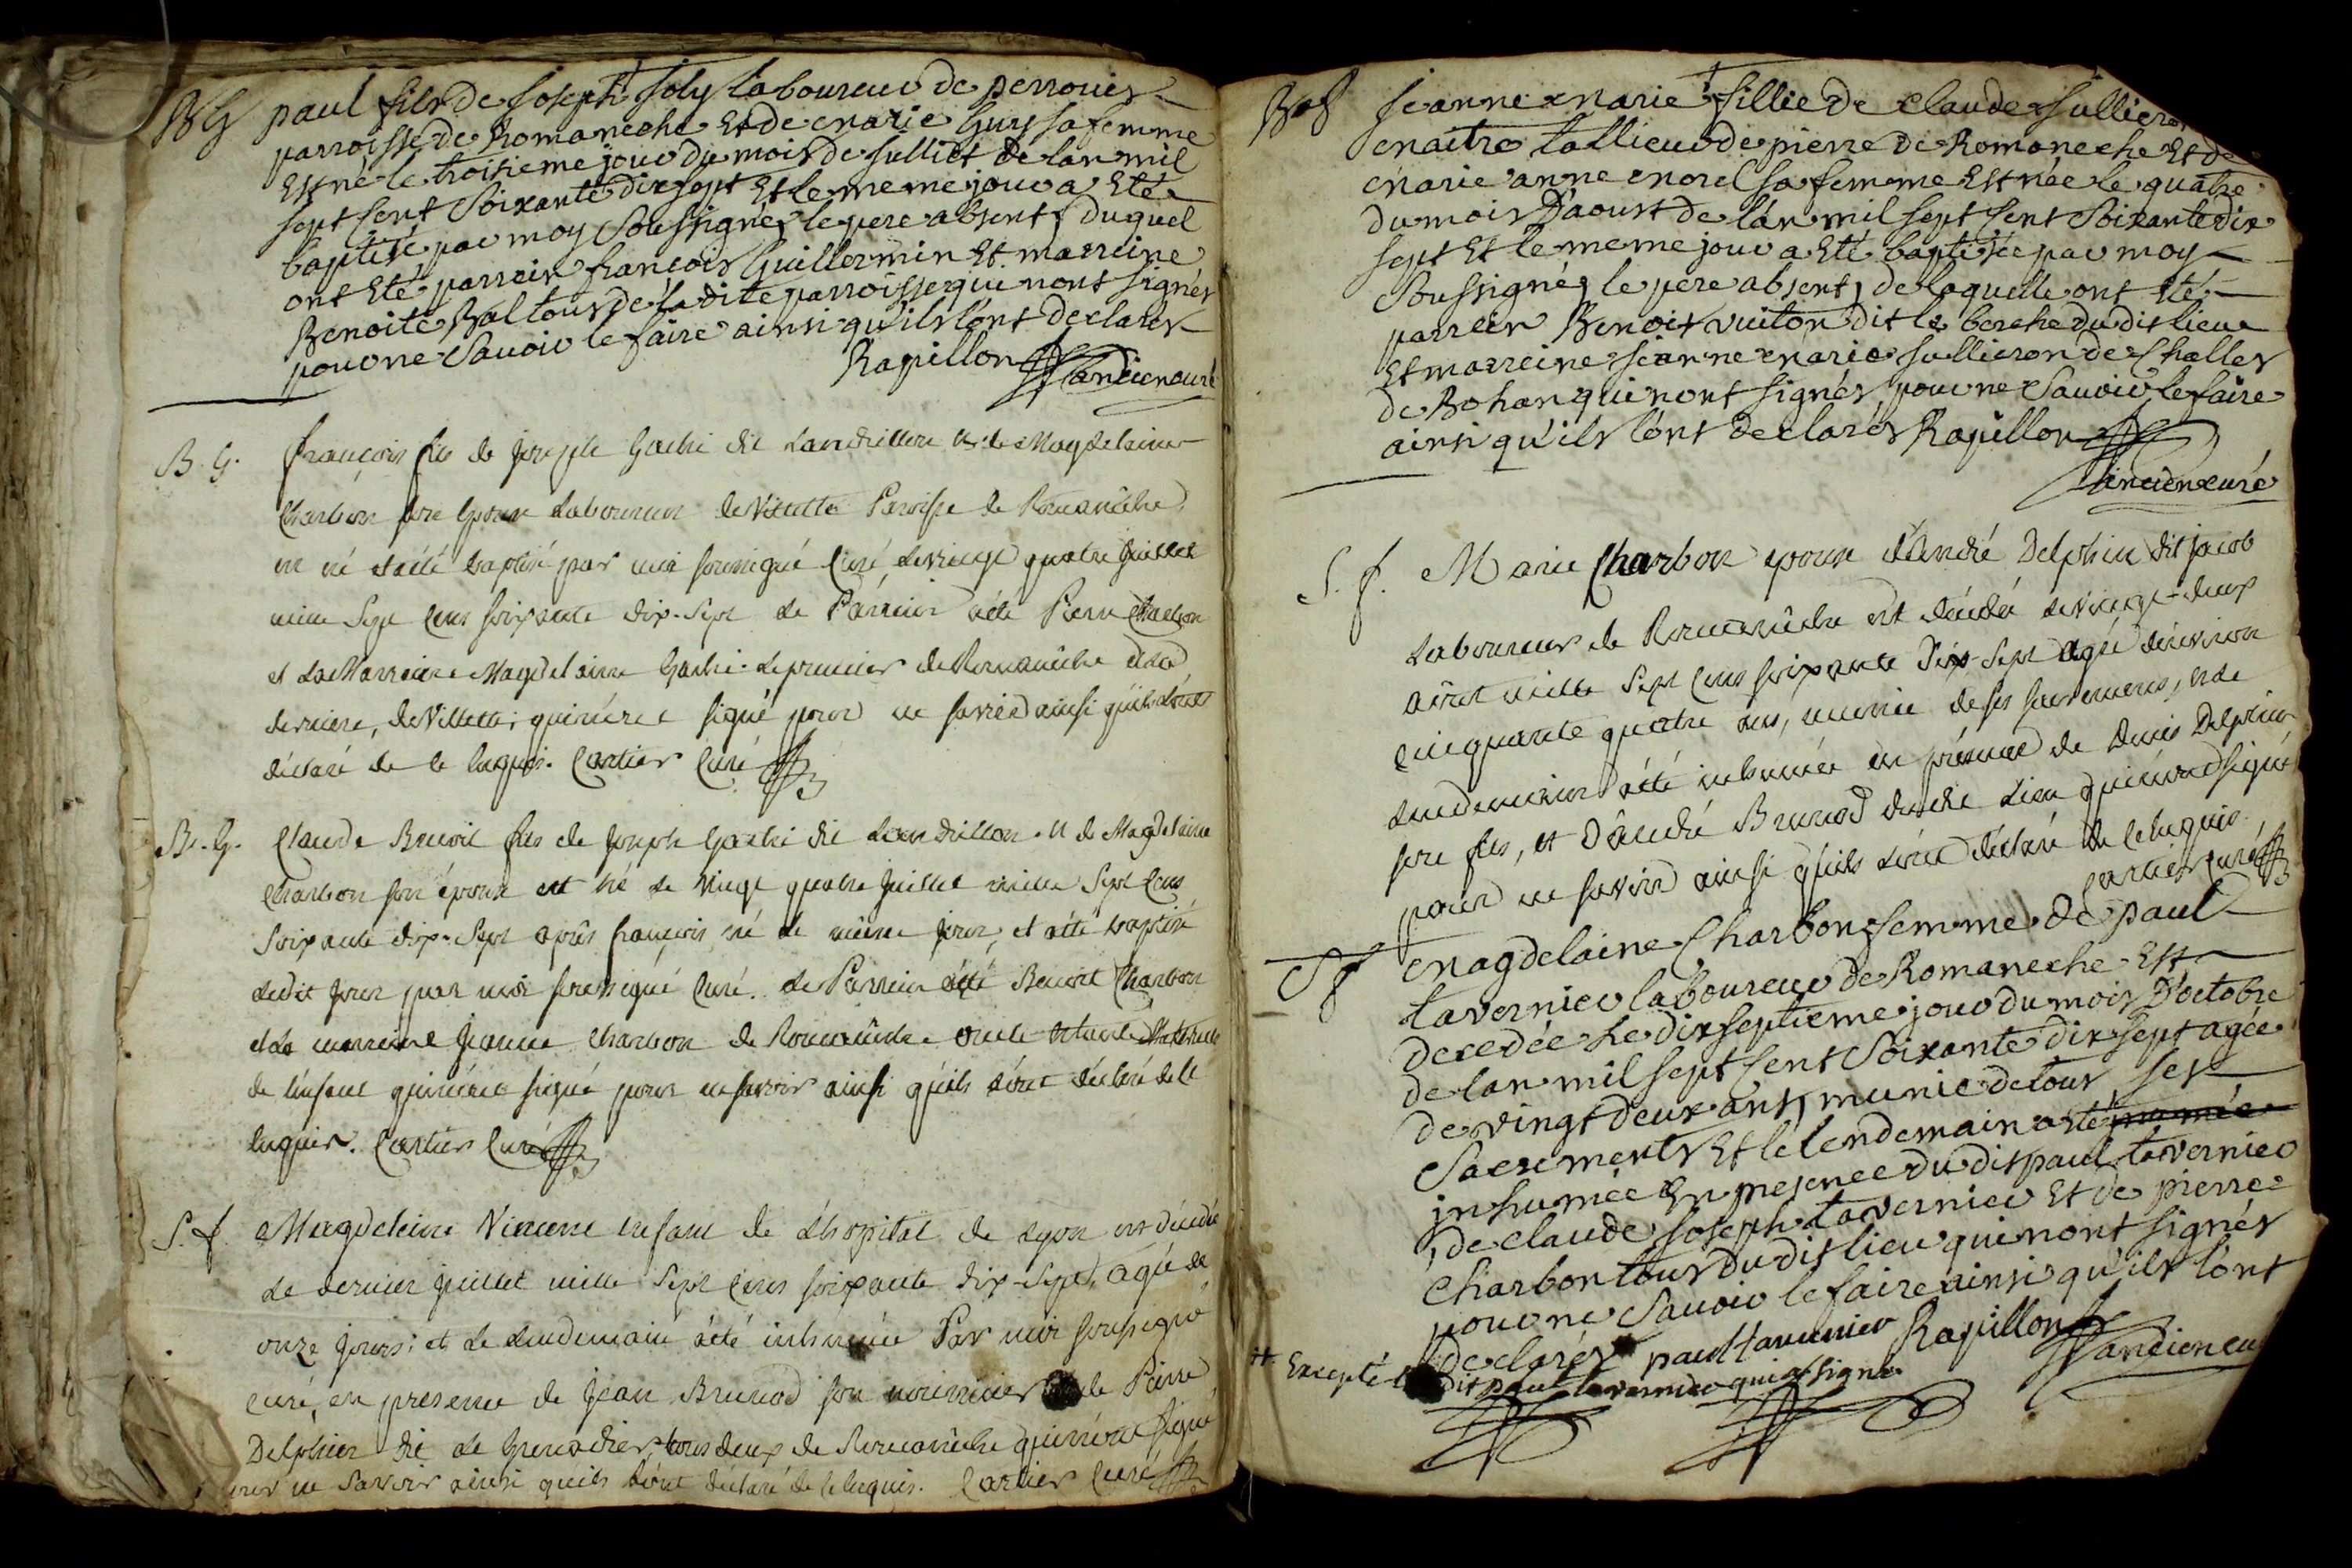 BG paul fils de Joseph Joly laboureur de perrouis
parroisse de Romaneche Et de marie Guy sa femme
Est né le troisieme jour du mois de Julliet de lan mil
sept Cent Soixante dix sept Et le meme jour a Eté
baptisé par moy Soussigné, le pere absent, duquel
ont Eté parrein francois Guillermin Et marreine
Benoite Baltour de la dite parroisse qui nont signés
pour ne Savoir le faire ainsi qu'ils l'ont declarés
Rapillon ancien curé
B. G. françois fils de Joseph Gachi dit Landrillon et de Magdelaine
Charbon son Epouse Laboureur de Villette Paroisse de Romanêche
est né et a été baptisé par moi soussigné Curé le vingt quatre Juillet
mille Sept Cens soixante dix-Sept le Parrein a été Pierre Charbon
et La Marreine Magdelaine Gachi. le premier de Romanêche et la
derniere, de Villette; qui n'ont signé pour ne savoir ainsi qu'ils l'ont
déclaré de ce enquis. Cartier Curé
B. G. Claude Benoit fils de Joseph Gachi dit Landrillon et de Magdelaine
Charbon son épouse est né le vingt quatre Juillet mille Sept Cens
Soixante dix-Sept après françois né le même jour, et a été baptisé
ledit jour par moi soussigné Curé. le Parrein a été Benoit Charbon
et La marreine Jeanne Charbon de Romanêche oncle et tante Maternelle
de l'enfant qui n'ont signé pour ne savoir ainsi qu'ils l'ont déclaré de ce
enquis. Cartier Curé
S. f. Magdeleine Vincent enfant de L'hopital de Lyon est décédée
le dernier Juillet mille Sept Cens soixante dix-Sept, agée de
onze jours; et le Lendemain a été inhumée Par moi soussigné
curé, en presence de Jean Brunod son nourricier et de Pierre
Delphin dit le Grenadier, tous deux de Romanêche qui n'ont signé
pour ne Savoir ainsi qu'ils l'ont déclaré de ce enquis. Cartier Curé
Bf Jeanne marie fillie de claude Jullieron
maitre tallieur de pierre de Romaneche Et de
marie anne morel sa femme Est née le quatre
du mois D'aoust de l'an mil sept Cent Soixante dix
sept Et le meme jour a Eté baptisée par moy
Soussigné, le pere absent, de laquelle ont Eté
parrein Benoit vuiton dit le berche du dit lieu
Et marreine Jeanne marie Jullieron de Challes
de Bohan qui nont signés, pour ne Savoir le faire
ainsi qu'ils l'ont declarés Rapillon
ancien curé
S. f. Marie Charbon epouse d'André Delphin dit Jacob
Laboureur de Romanêche est décédée le vingt-deux
août mille Sept Cens soixante Dix-Sept agée d'environ
cinquante quatre ans, munie de ses sacremens, et le
Lendemain a été inhumée en présence de Denis Delphin
son fils, et D'André Brunod dudit Lieu qui n'ont signé
pour ne savoir ainsi qu'ils l'ont déclaré de ce enquis.
Cartier Curé
Sf magdelaine Charbon femme de paul
tavernier laboureur de Romaneche Est
decedée Le dix septieme jour du mois D'octobre
de lan mil sept Cent Soixante dix sept agée
de vingt deux ans, munie de tous ses
Sacrements Et le lendemain a Eté
inhumée En presence du dit paul tavernier
, de claude Joseph tavernier Et de pierre
Charbon tous du dit lieu qui nont signés
pour ne Savoir le faire ainsi qu'ils l'ont
declarés paul tavernier Rapillon
Excepté le dit paul tavernier qui a signé ancien cu